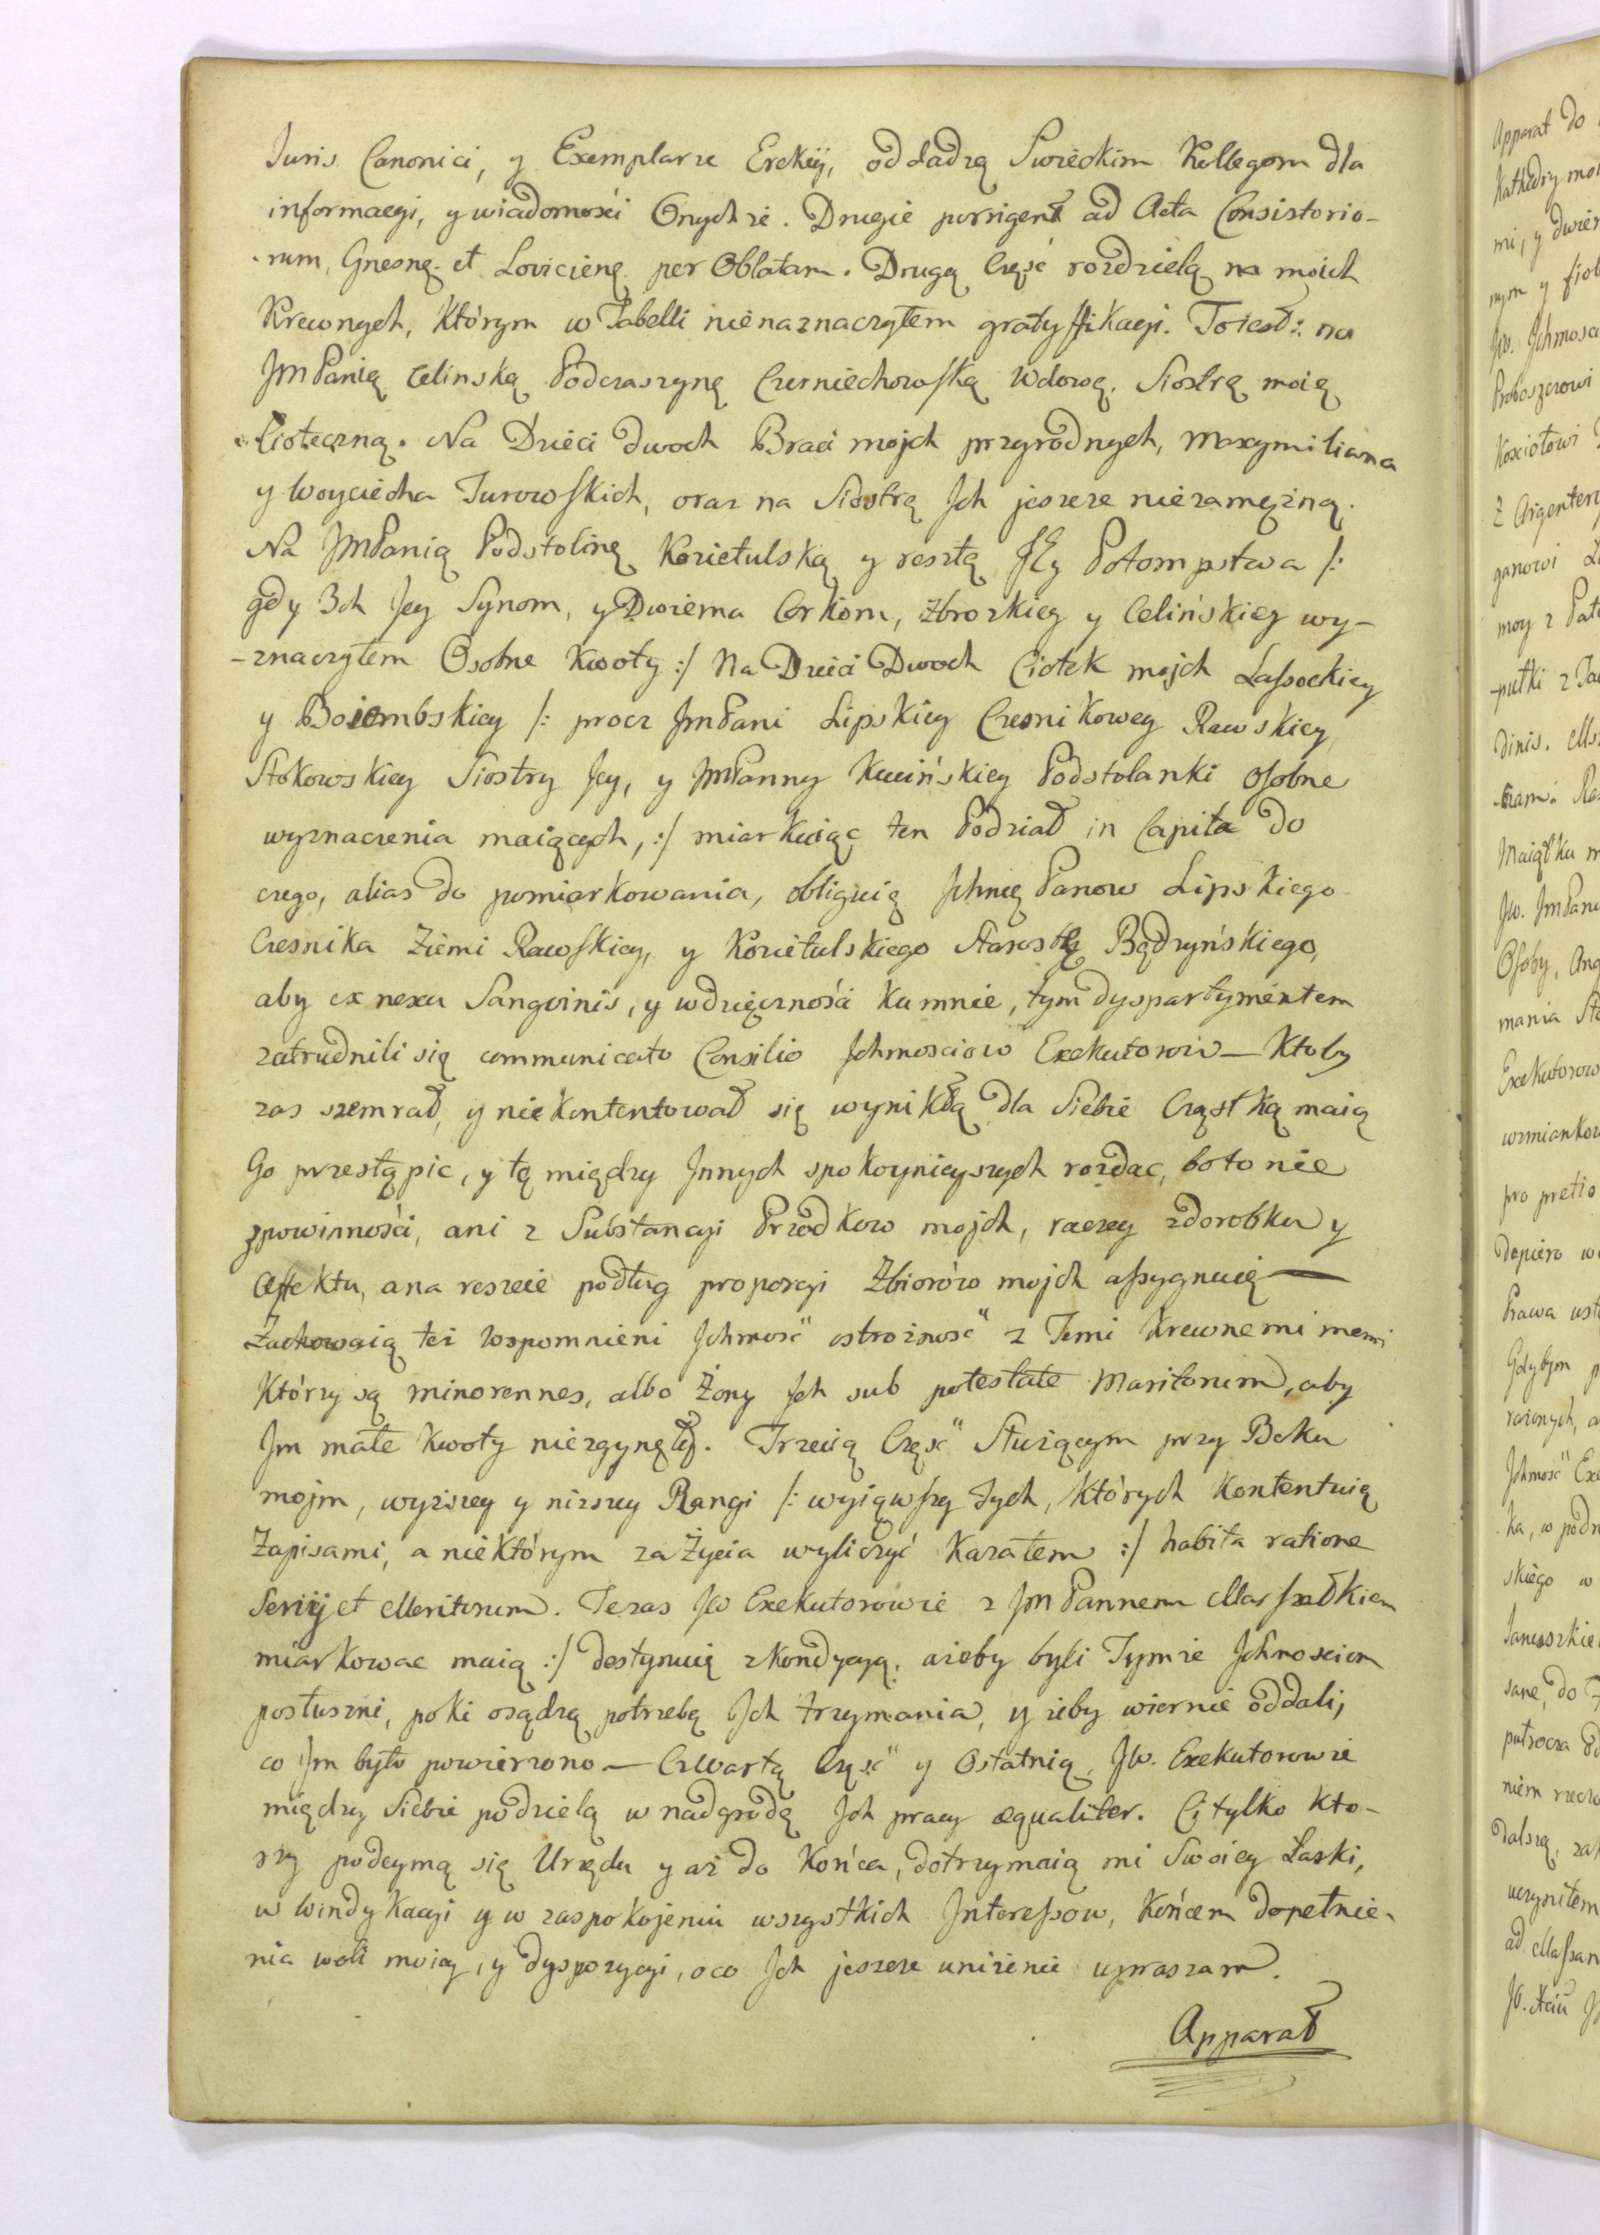 Juris Canonici, y Exemplarze Erekcij, oddadzą Swieckim Kollegom dla
informacyi, y wiadomości Onychże. Drugie porrigent ad Acta Consistorio-
-rum, Gnesnę. et Lovicienę. per Oblatam. Drugą Część rozdzielą na moich
Krewnych, Którym w Tabelli nienaznaczyłem gratyffikacyi. To iest: na
JmPanią Celinską Podczaszynę Czerniechowską Wdowę. Siostrę moię
Cioteczną. Na Dzieci dwoch Braci mojch przyrodnych, Maxymiliana
y Woyciecha Turowskich, oraz na Siostrę Jch jeszcze niezamęzną.
Na JmPanią Podstolinę Kozietulską y resztę JEy Potompstwa /:
gdy 3ch Jey Synom, y Dwiema Corkom, Zbrozkiey y Celińskiey wy-
-znaczyłem Osobne Kwoty :/ Na Dzieci Dwoch Ciotek mojch Lassockiey
y Boiembskiey /: procz JmPani Lipskiey Czesnikowey Rawskiey,
Stokowskiey Siostry Jey, y JmPanny Kucińskiey Podstolanki osobne
wyznaczenia maiących, :/ miarkuiąc ten Podział in Capita do
czego, alias do pomiarkowania, obliguię Jchmę Panow Lipskiego
Czesnika Ziemi Rawskiey, y Kozietulskiego Starostę Bądzyńskiego,
aby ex nexu Sangvinis, y wdzięcznośći ku mnie, tym dyspartymentem
zatrudnili się communicato Consilio Jchmosciow Exekutorow — Ktoby
zas szemrał, y nie kontentował się wynikłą dla Siebie Cząstką maią
Go przestąpic, y tę między Jnnych spokoynieyszych rozdac, bo to nie
zpowinnośći, ani z Substancyi Przodkow mojch, raczey zdorobku y
Affektu, a na reszcie podług proporcyi Zbiorów mojch assygnuię —
Zachowaią też Wspomnieni Jchmosć ostrożnosć z Temi Krewnemi memi
Którzy są minorennes, albo Żony Jch sub potestate Maritorum, aby
Jm małe Kwoty niezgynęły. Trzecią Częsć Służącym przy Boku
mojm, wyzszey y nizszey Rangi /: wyiąwszy Tych, Których Kontentuię
Zapisami, a nieKtórym za Życia wyliczyć Kazałem :/ habita ratione
Servij et Meritorum. Te zas Jw Exekutorowie z Jm Pannem Marszałkiem
miarkowac maią :/ destynuię z Kondycyą, ażeby byli Tymże Jchmosciom
posłuszni, poki osądzą potrzebą Jch trzymania, y żeby wiernie oddali,
co Jm było powierzono — Czwartą Częsć y Ostatnią, Jw. Exekutorowie
między Siebie podzielą w nadgrodę Jch pracy æqualiter. Ci tylko kto-
rzy podeymą się Urzędu y aż do Końca, dotrzymaią mi Swoiey Łaski,
w Windykacyi y w zaspokojeniu wszystkich Jnteressow, Końcem dopełnie-
nia woli moiey, y dyspozycyi, o co Jch jeszcze unizenie upraszam.
Apparat